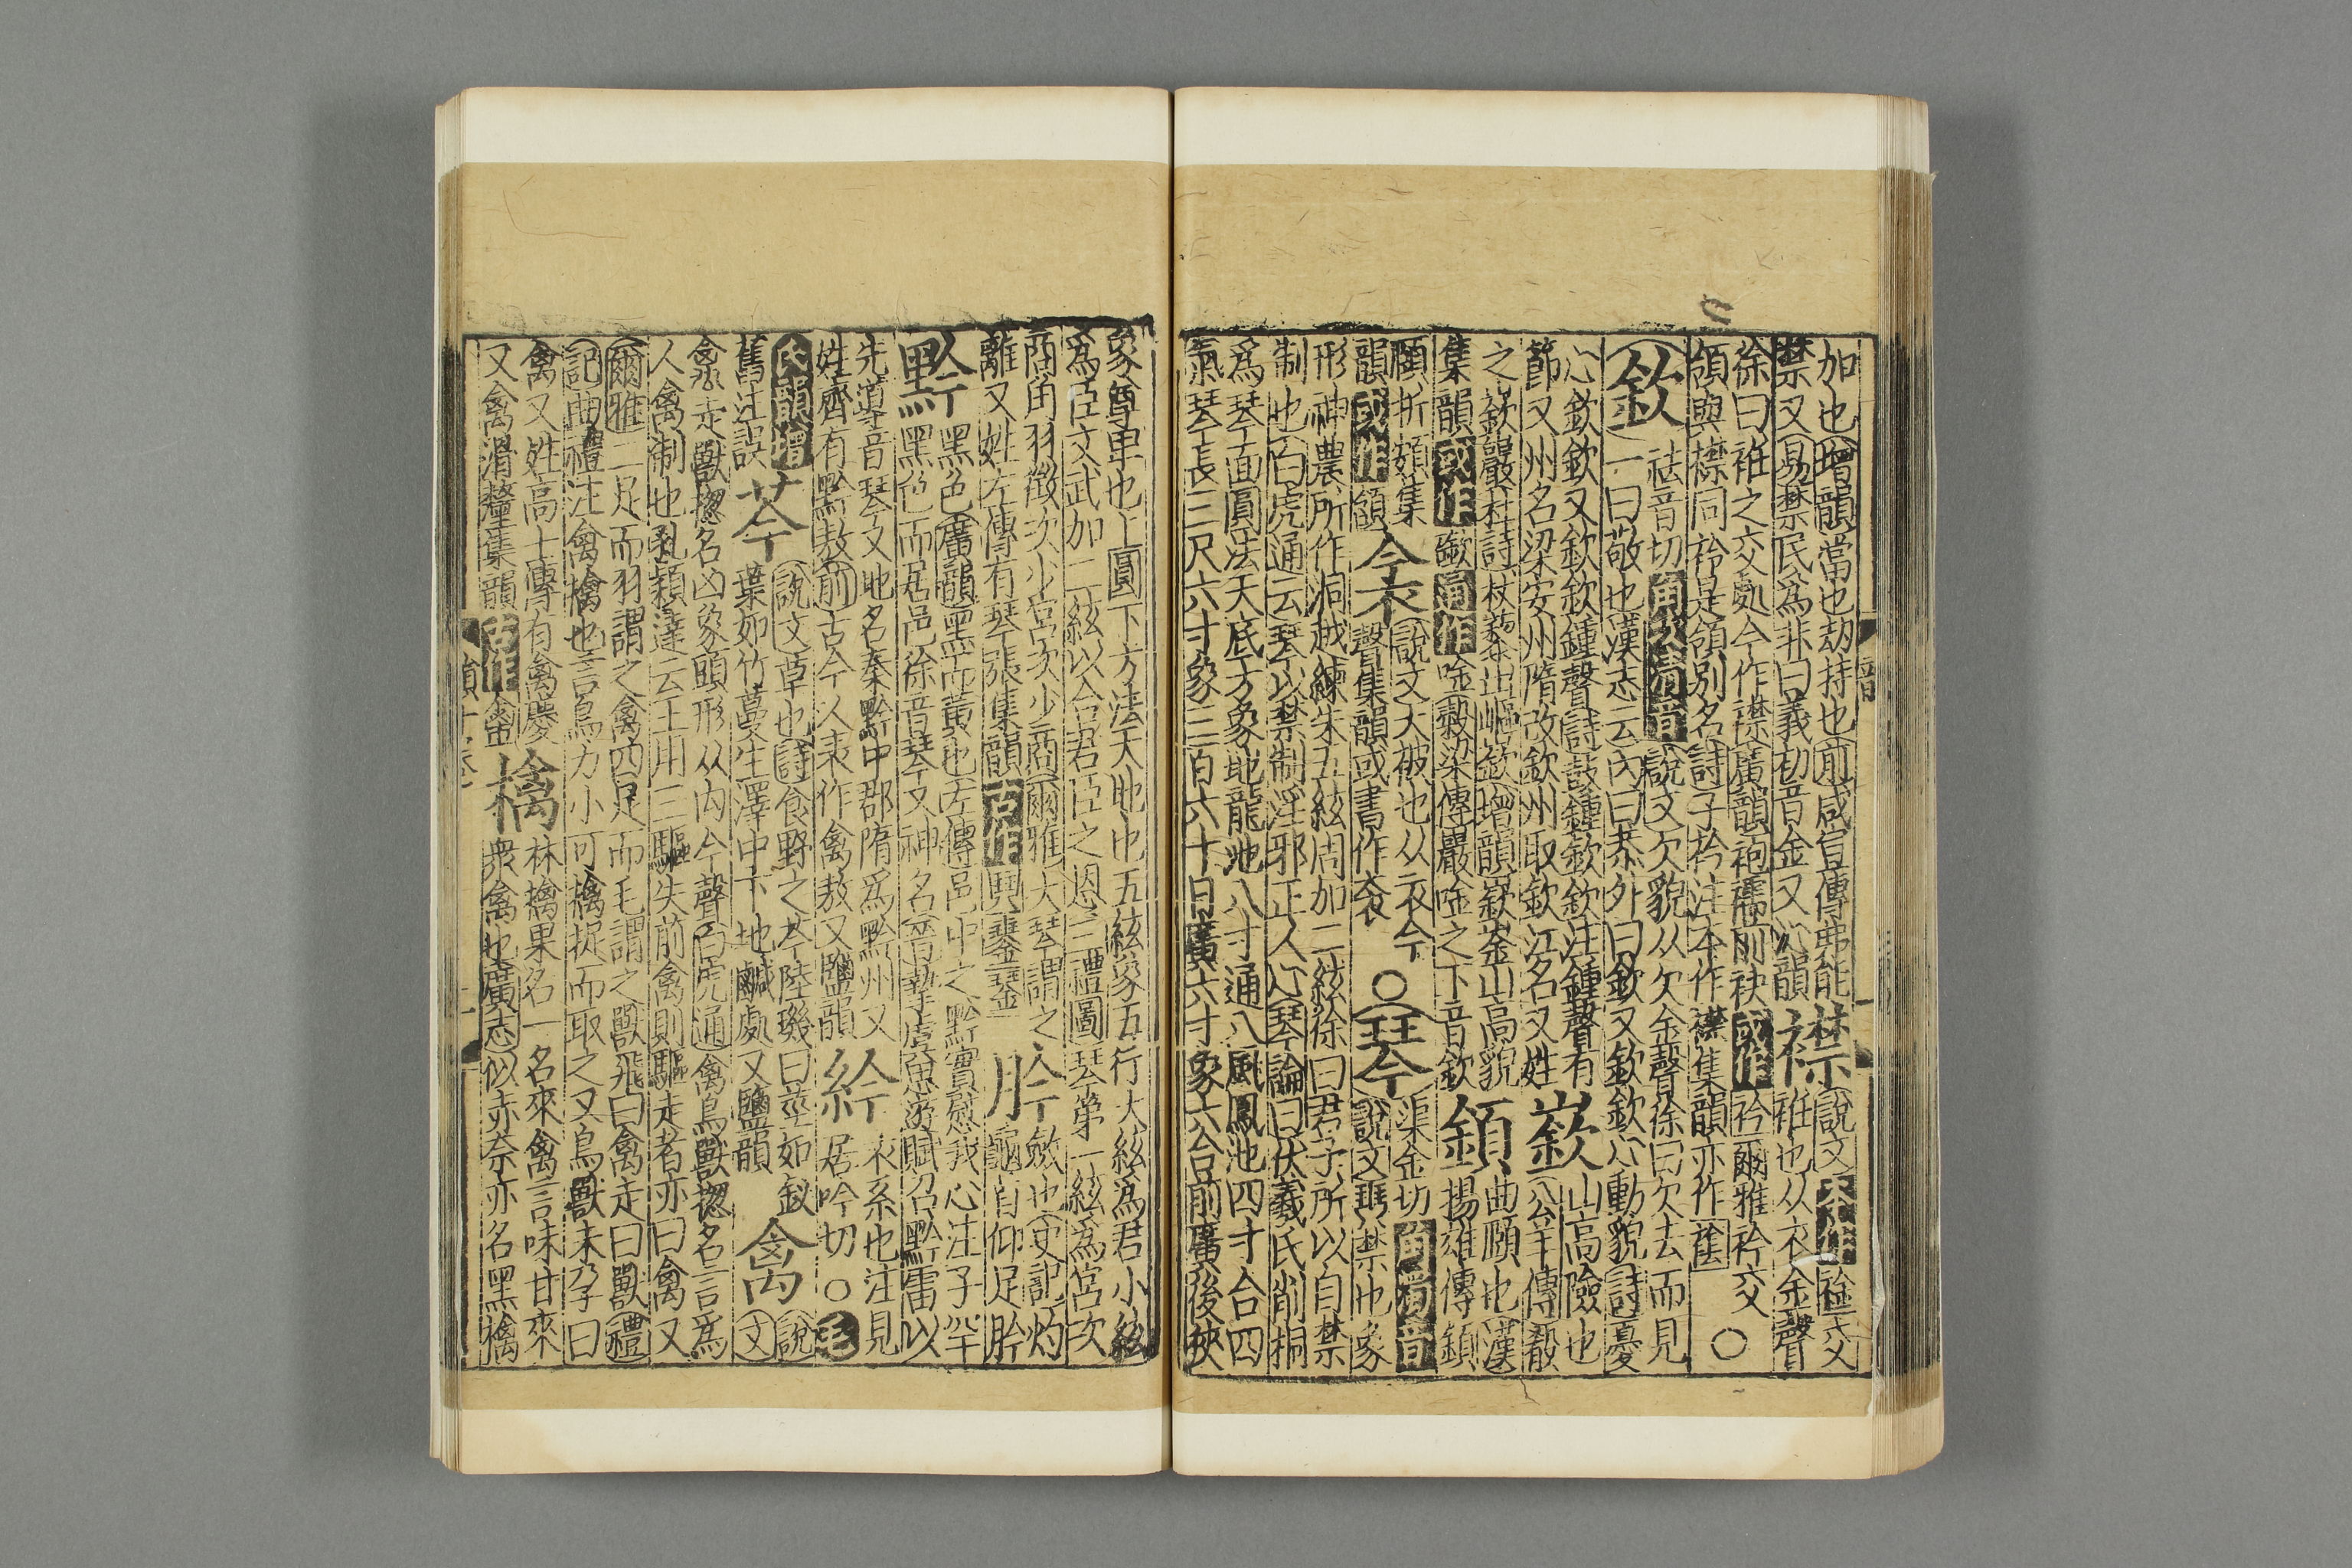 加也增韻當也劫持也前咸宣傳弗能
禁又易禁民爲非曰義初音金又沁韻
襟
說文本作䘳交
衽也从衣金聲
徐曰衽之交處今作襟廣韻袍襦前袂或作衿爾雅衿交
領與襟同衿是領別名詩子衿注本作襟集韻亦作𮝴○
欽
祛音切角次清音說文欠貌从欠金聲徐曰欠去而見
一曰敬也漢志云內曰恭外曰欽又欽欽心動貌詩憂
心欽欽又欽欽鍾聲詩鼓鍾欽欽注鍾聲有
節又州名梁安州隋改欽州取欽江名又姓
嶔
山高險也
公羊傳殽
之嶔巖杜詩杖藜出嶇嶔增韻嶔崟山高貌
集韻或作𡼲通作唫穀梁傳巖唫之下音欽
顉
曲頤也漢
揚雄傳顉
頤折頞集
韻或作頷
衾
說文大被也从衣今
聲集韻或書作衮
○
琴
渠金切角濁音
說文珡禁也象
形神農所作洞越練朱五絃周加二絃徐曰君子所以自禁
制也白虎通云琴以禁制淫邪正人心琴論曰伏羲氏削桐
爲琴面圓法天底方象地龍池八寸通八風鳳池四寸合四
氣琴長三尺六寸象三百六十日廣六寸象六合前廣後狹
象尊卑也上圓下方法天地也五絃象五行大絃爲君小絃
爲臣文武加二絃以合君臣之恩三禮圖琴第一絃爲宮次
商角羽徵次少宮次少商爾雅大琴謂之
離又姓左傳有琴張集韻古作珡𨥧琻
肣
斂也史記灼
龜首仰足肣
黔
黑色廣韻黑而黃也左傳邑中之黔實慰我心注子罕
黑色而居邑徐音琴又神名
先導音琴又地名秦黔中郡隋爲黔州又
姓齊有黔敖前古今人表作禽敖又鹽韻
紟
衣系也注見
居吟切○毛
氏韻增
舊注誤
芩
說文草也詩食野之芩陸璣曰莖如釵
葉如竹蔓生澤中下地鹹處又鹽韻
禽
說
文
禽走獸揔名凶象頭形从禸今聲白虎通禽鳥獸揔名言爲
人禽制也孔穎達云王用三驅失前禽則驅走者亦曰禽又
爾雅二足而羽謂之禽四足而毛謂之獸飛曰禽走曰獸禮
記曲禮注禽擒也言鳥力小可擒捉而取之又鳥獸未孕曰
禽又姓高士傳有禽慶
又禽滑釐集韻古作
檎
林檎果名一名來禽言味甘來
衆禽也廣志似赤柰亦名黑檎